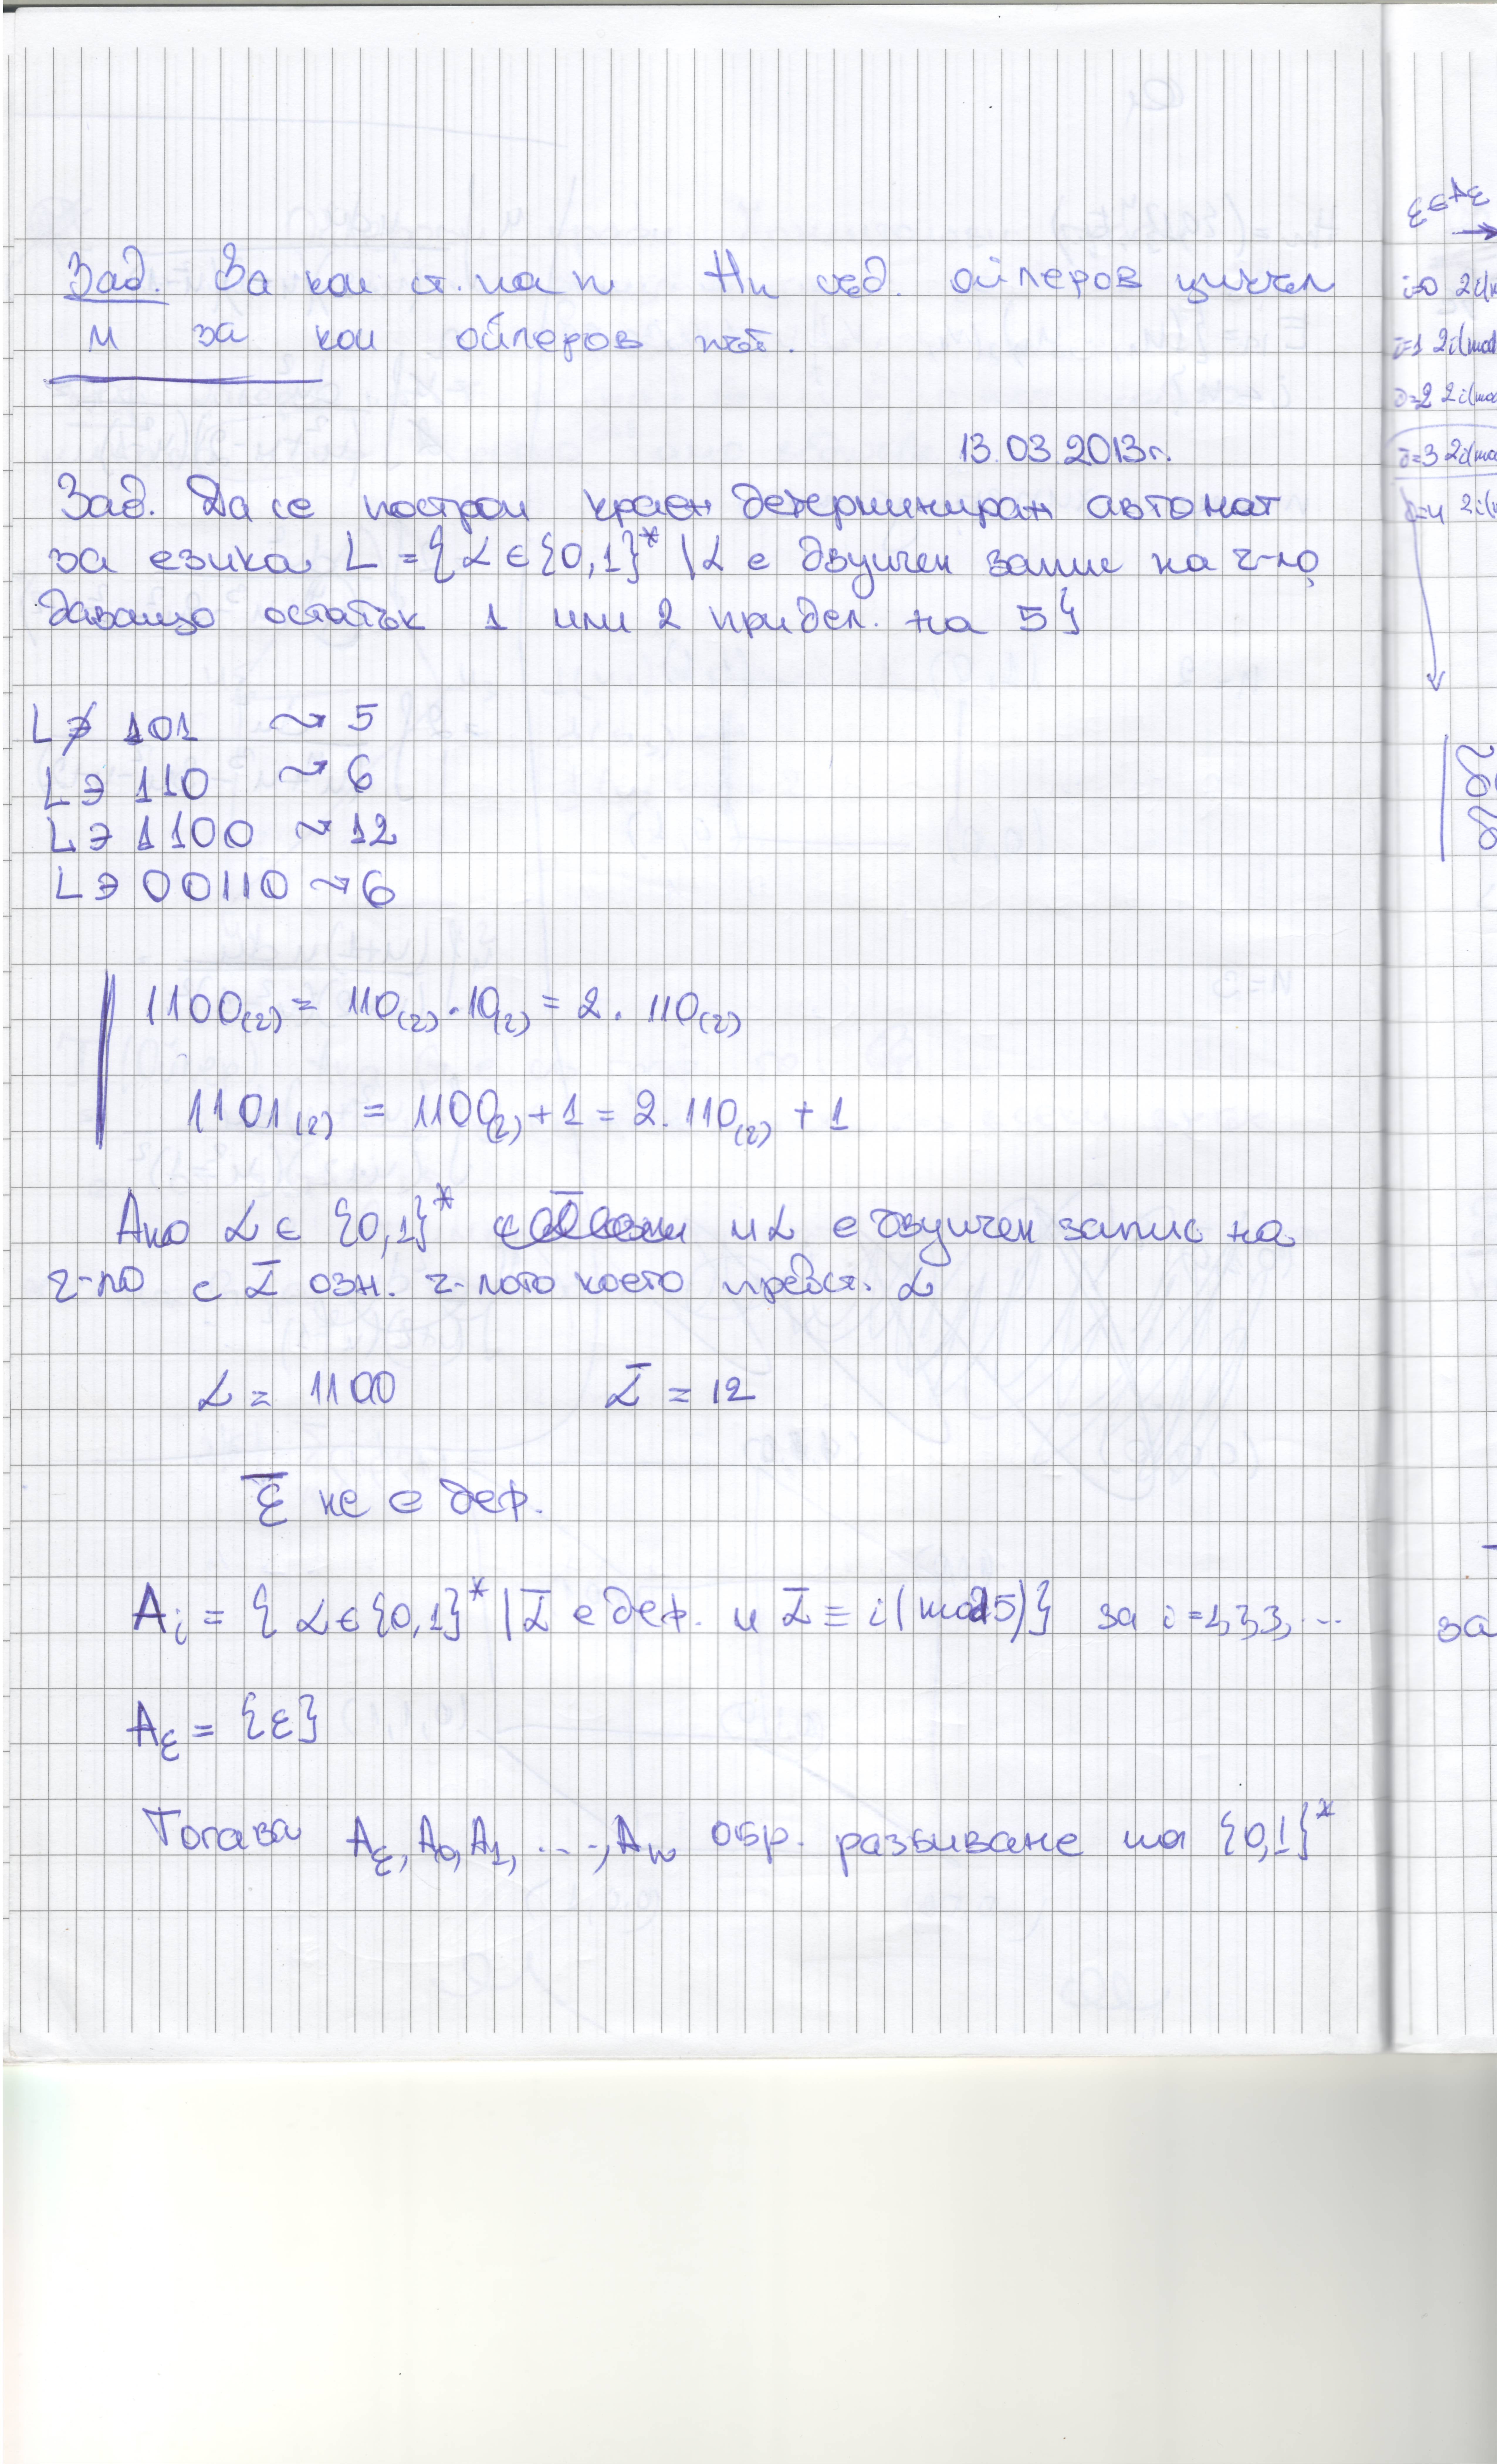 Зад. За кои ст. на n Hn съд. ойлеров цикъл
и за кои ойлеров път.
13.03.2013г.
Зад. Да се построи краен детерминиран автомат
за езика L = {α ∈ {0,1}* | α е двуичен запис на ч-ло,
даващо остатък 1 или 2 при дел. на 5}
L ∌ 101 ⇝ 5
L ∋ 110 ⇝ 6
L ∋ 1100 ⇝ 12
L ∋ 00110 ⇝ 6
1100(2) = 110(2) . 10(2) = 2 . 110(2)
1101(2) = 1100(2) + 1 = 2. 110(2) + 1
Ако α ∈ {0,1}* и α е двуичен запис на
ч-ло с ᾱ озн. ч-лото което предст. α
α = 1100 ᾱ = 12
ε̄ не е деф.
Ai = { α ∈ {0,1}* | ᾱ е деф. и ᾱ ≡ i (mod 5)} за i =
Aε = {ε}
Тогава Aε, A0, A1, ..., An обр. разбиване на {0,1}*
ε∈Aε
i=0 2i(
i=1 2i(mod
i=2 2i(mod
i=3 2i(mod
i=4 2i(
за